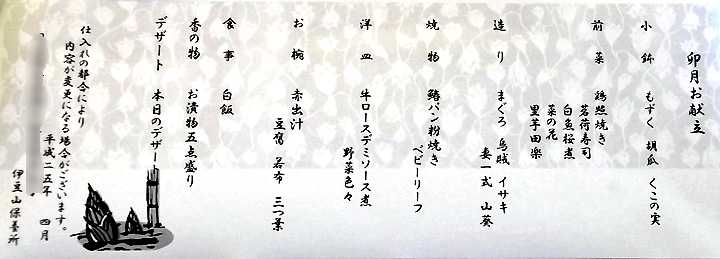 卯月お献立
小鉢 もずく 胡瓜 くこの実
前菜 鶏照焼き
茗荷寿司
白魚桜煮
菜の花
里芋田楽
造り まぐろ 烏賊 イサキ
妻一式 山葵
焼物 鰆パン粉焼き
ベビーリーフ
洋皿 牛ロースデミソース煮
野菜色々
お椀 赤出汁
豆腐 若布 三つ葉
食事 白飯
香の物 お漬物五点盛り
デザート 本日のデザート
仕入れの都合により
内容が変更になる場合がございます。
平成二五年 四月
伊豆山保養所